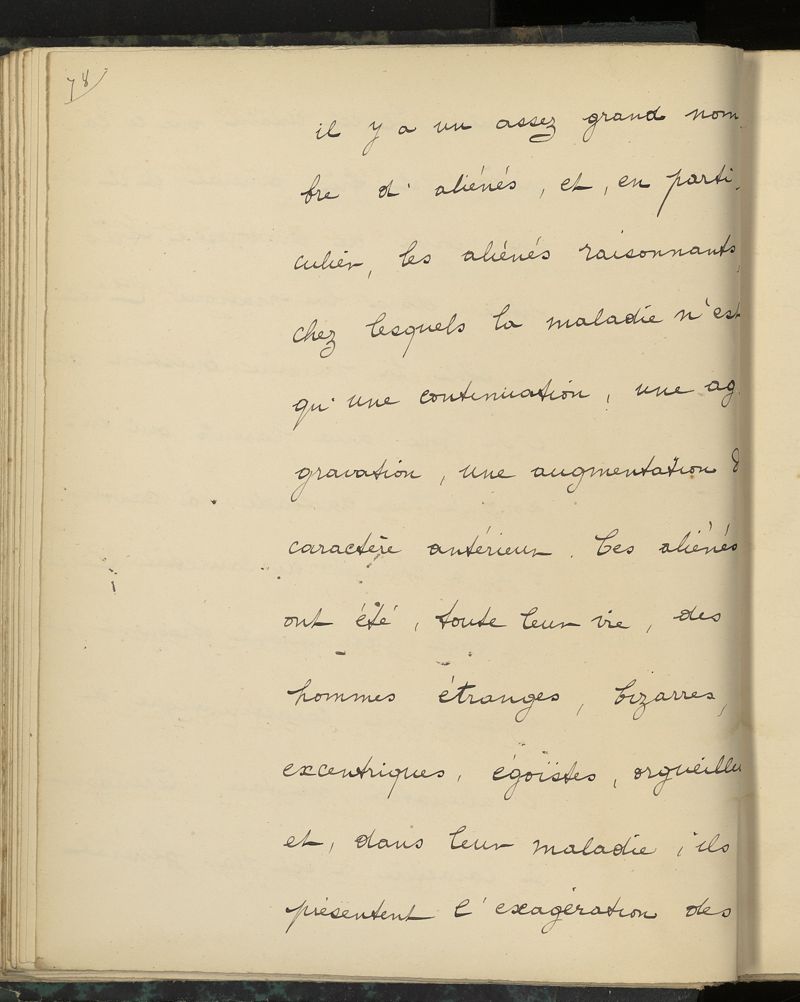 78
il y a un assez grand nom-
bre d'aliénés, et, en parti-
culier, les aliénés raisonnants,
chez lesquels la maladie n'est
qu'une continuation, une ag-
gravation, une augmentation
caractère antérieur. Ces aliénés
ont été, toute leur vie, des
hommes étranges, bizarres,
excentriques, égoïstes, orgueilleu
et, dans leur maladie, ils
présentent l'exagération des